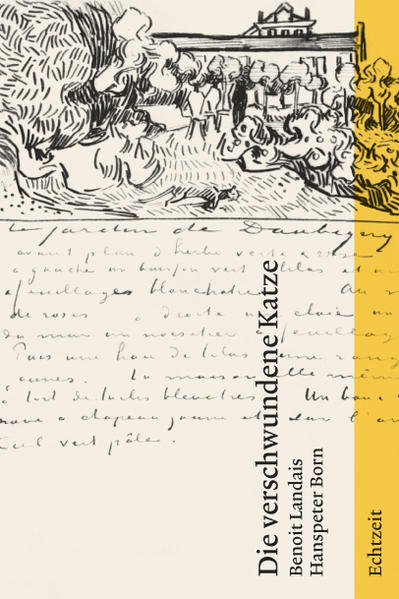 le jardin de Daubigny
avant plan d'herbe verte & rose
a gauche un buisson vert lilas et
feuillages blanchatres Au
de roses à droite une claie un
mur un noisetier a feuillag
Puis une haie de lilas une rang
jaunes. La maison elle même
toit de tuiles bleuatres Un banc
& chapeau jaune et
Ciel vert pâle.
Die verschwundene Katze
Benoit Landais
Hanspeter Born
Echtzeit